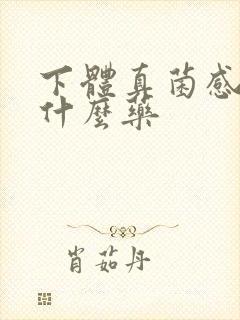 下體真菌感
什麼藥
肖茹丹